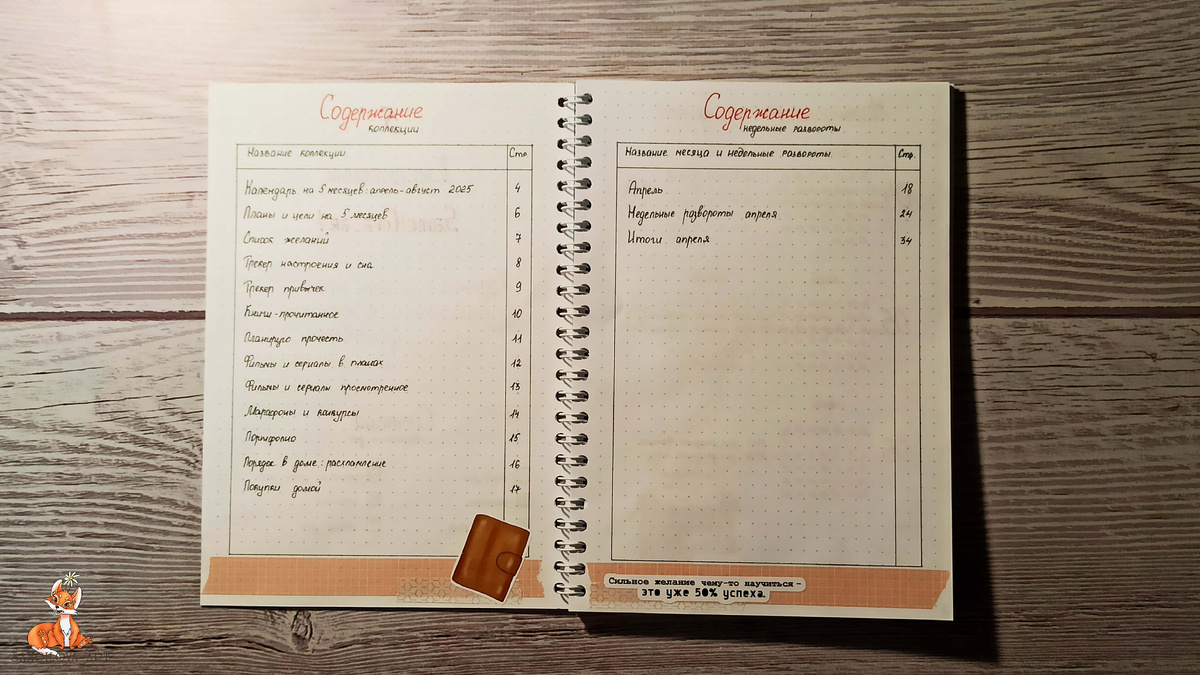 Содержание
коллекции
Название коллекции Стр.
Календарь на 5 месяцев: апрель-август 2025 4
Планы и цели на 5 месяцев 6
Список желаний 7
Трекер настроения и сна 8
Трекер привычек 9
Книги-прочитанное 10
Планирую прочесть 11
Фильмы и сериалы в планах 12
Фильмы и сериалы просмотренное 13
Марафоны и конкурсы 14
Портфолио 15
Порядок в доме: расхламление 16
Покупки домой 17
Содержание
недельные развороты
Название месяца и недельные развороты. Стр.
Апрель 18
Недельные развороты апреля 24
Итоги апреля 34
Сильное желание чему-то научиться –
это уже 50% успеха.